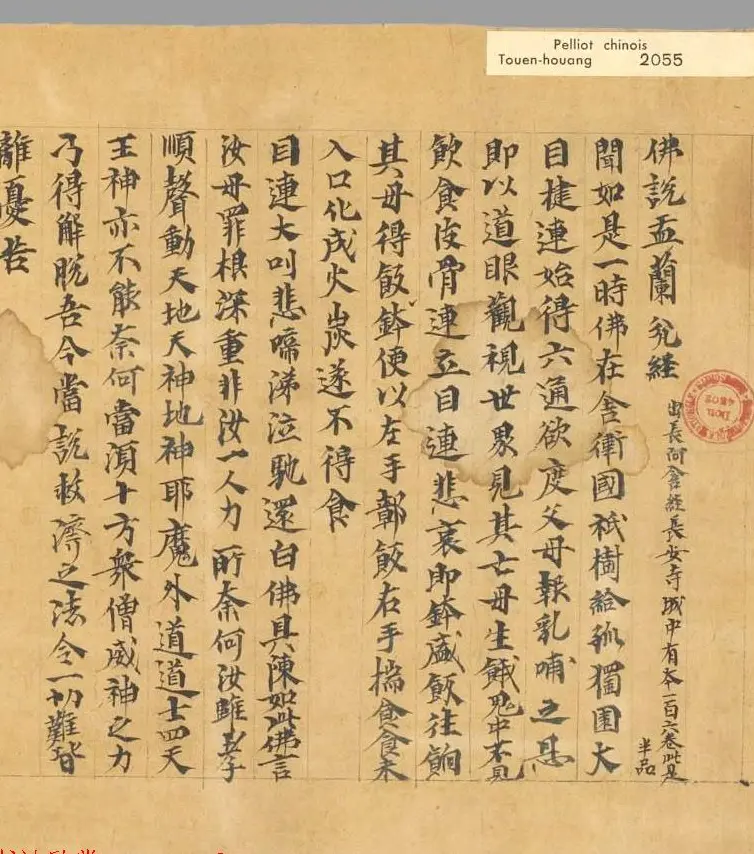 Pelliot chinois
Touen-houang 2055
佛說盂蘭瓫経 出長阿含經長安寺城中有本一百六卷此是半品
聞如是一時佛在舍衛國祇樹給孤獨園大
目揵連始得六通欲度父母報乳哺之恩
即以道眼觀視世界見其亡母生餓鬼中不見
飲食皮骨連立目連悲哀即鉢盛飯往餉
其母得飯鉢便以左手鄣飯右手揣食食未
入口化成火炭遂不得食
目連大叫悲啼涕泣馳還白佛具陳如此佛言
汝母罪根深重非汝一人力所奈何汝雖孝
順聲動天地天神地神耶魔外道道士四天
王神亦不能奈何當須十方衆僧威神之力
乃得解脫吾今當說救濟之法令一切難皆
離憂苦